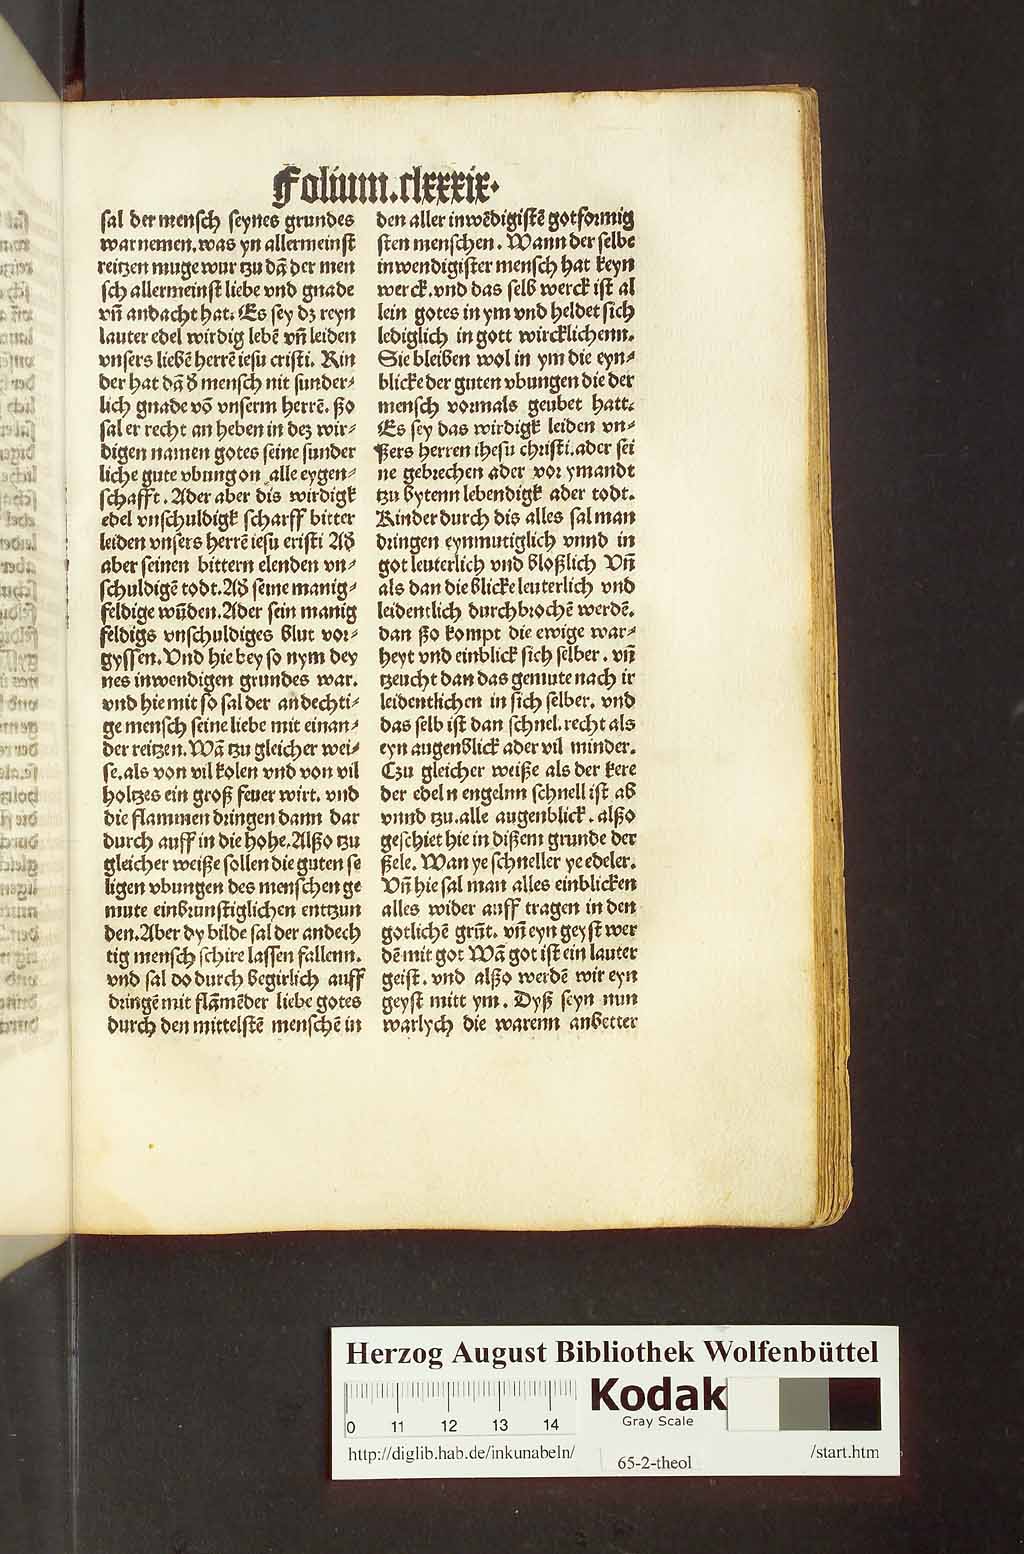 Folium.clxxxix.
sal der mensch seynes grundes
warnemen. was yn allermeinst
reitzen muge wur tzu dā der men
sch allermeinst liebe vnd gnade
vn̄ andacht hat. Es sey dz reyn
lauter edel wirdig lebē vn̄ leiden
vnsers liebē herrē iesu cristi. Kin
der hat dā d̕ mensch nit sunder⸗
lich gnade vō vnserm herrē. ßo
sal er recht an heben in dez wir⸗
digen namen gotes seine sunder
liche gute vbung on alle eygen⸗
schafft. Ader aber dis wirdigk
edel vnschuldigk scharff bitter
leiden vnsers herrē iesu cristi Ad̕
aber seinen bittern elenden vn⸗
schuldigē todt. Ad̕ seine manig⸗
feldige wūden. Ader sein manig
feldigs vnschuldiges blut vor⸗
gyssen. Vnd hie bey so nym dey
nes inwendigen grundes war.
vnd hie mit so sal der andechti⸗
ge mensch seine liebe mit einan⸗
der reitzen. Wā tzu gleicher wei⸗
se. als von vil kolen vnd von vil
holtzes ein groß feuer wirt. vnd
die flammen dringen dann dar
durch auff in die hohe. Alßo tzu
gleicher weiße sollen die guten se
ligen vbungen des menschen ge
mute einbrunstiglichen enttzun
den. Aber dy bilde sal der andech
tig mensch schire lassen fallenn.
vnd sal do durch begirlich auff
dringē mit flāmēder liebe gotes
durch den mittelstē menschē in
den aller inwēdigistē gotformig
sten menschen. Wann der selbe
inwendigister mensch hat keyn
werck. vnd das selb werck ist al
lein gotes in ym vnd heldet sich
lediglich in gott wircklichenn.
Sie bleiben wol in ym die eyn⸗
blicke der guten vbungen die der
mensch vormals geubet hatt.
Es sey das wirdigk leiden vn⸗
ßers herren ihesu christi. ader sei
ne gebrechen ader vor ymandt
tzu bytenn lebendigk ader todt.
Kinder durch dis alles sal man
dringen eynmutiglich vnnd in
got leuterlich vnd bloßlich Vn̄
als dan die blicke leuterlich vnd
leidentlich durchbrochē werdē.
dan ßo kompt die ewige war⸗
heyt vnd einblick sich selber. vn̄
tzeucht dan das gemute nach ir
leidentlichen in sich selber. vnd
das selb ist dan schnel. recht als
eyn augenblick ader vil minder.
Czu gleicher weiße als der kere
der edeln engelnn schnell ist ab
vnnd tzu. alle augenblick. alßo
geschiet hie in dißem grunde der
ßele. Wan ye schneller ye edeler.
Vn̄ hie sal man alles einblicken
alles wider auff tragen in den
gotlichē grūt. vn̄ eyn geyst wer
dē mit got Wā got ist ein lauter
geist. vnd alßo werdē wir eyn
geyst mitt ym. Dyß seyn nun
warlych die warenn anbetter
Herzog August Bibliothek Wolfenbüttel
0 11 12 13 14
Kodak
Gray Scale
http://diglib.hab.de/inkunabeln/ 65-2-theol /start.htm